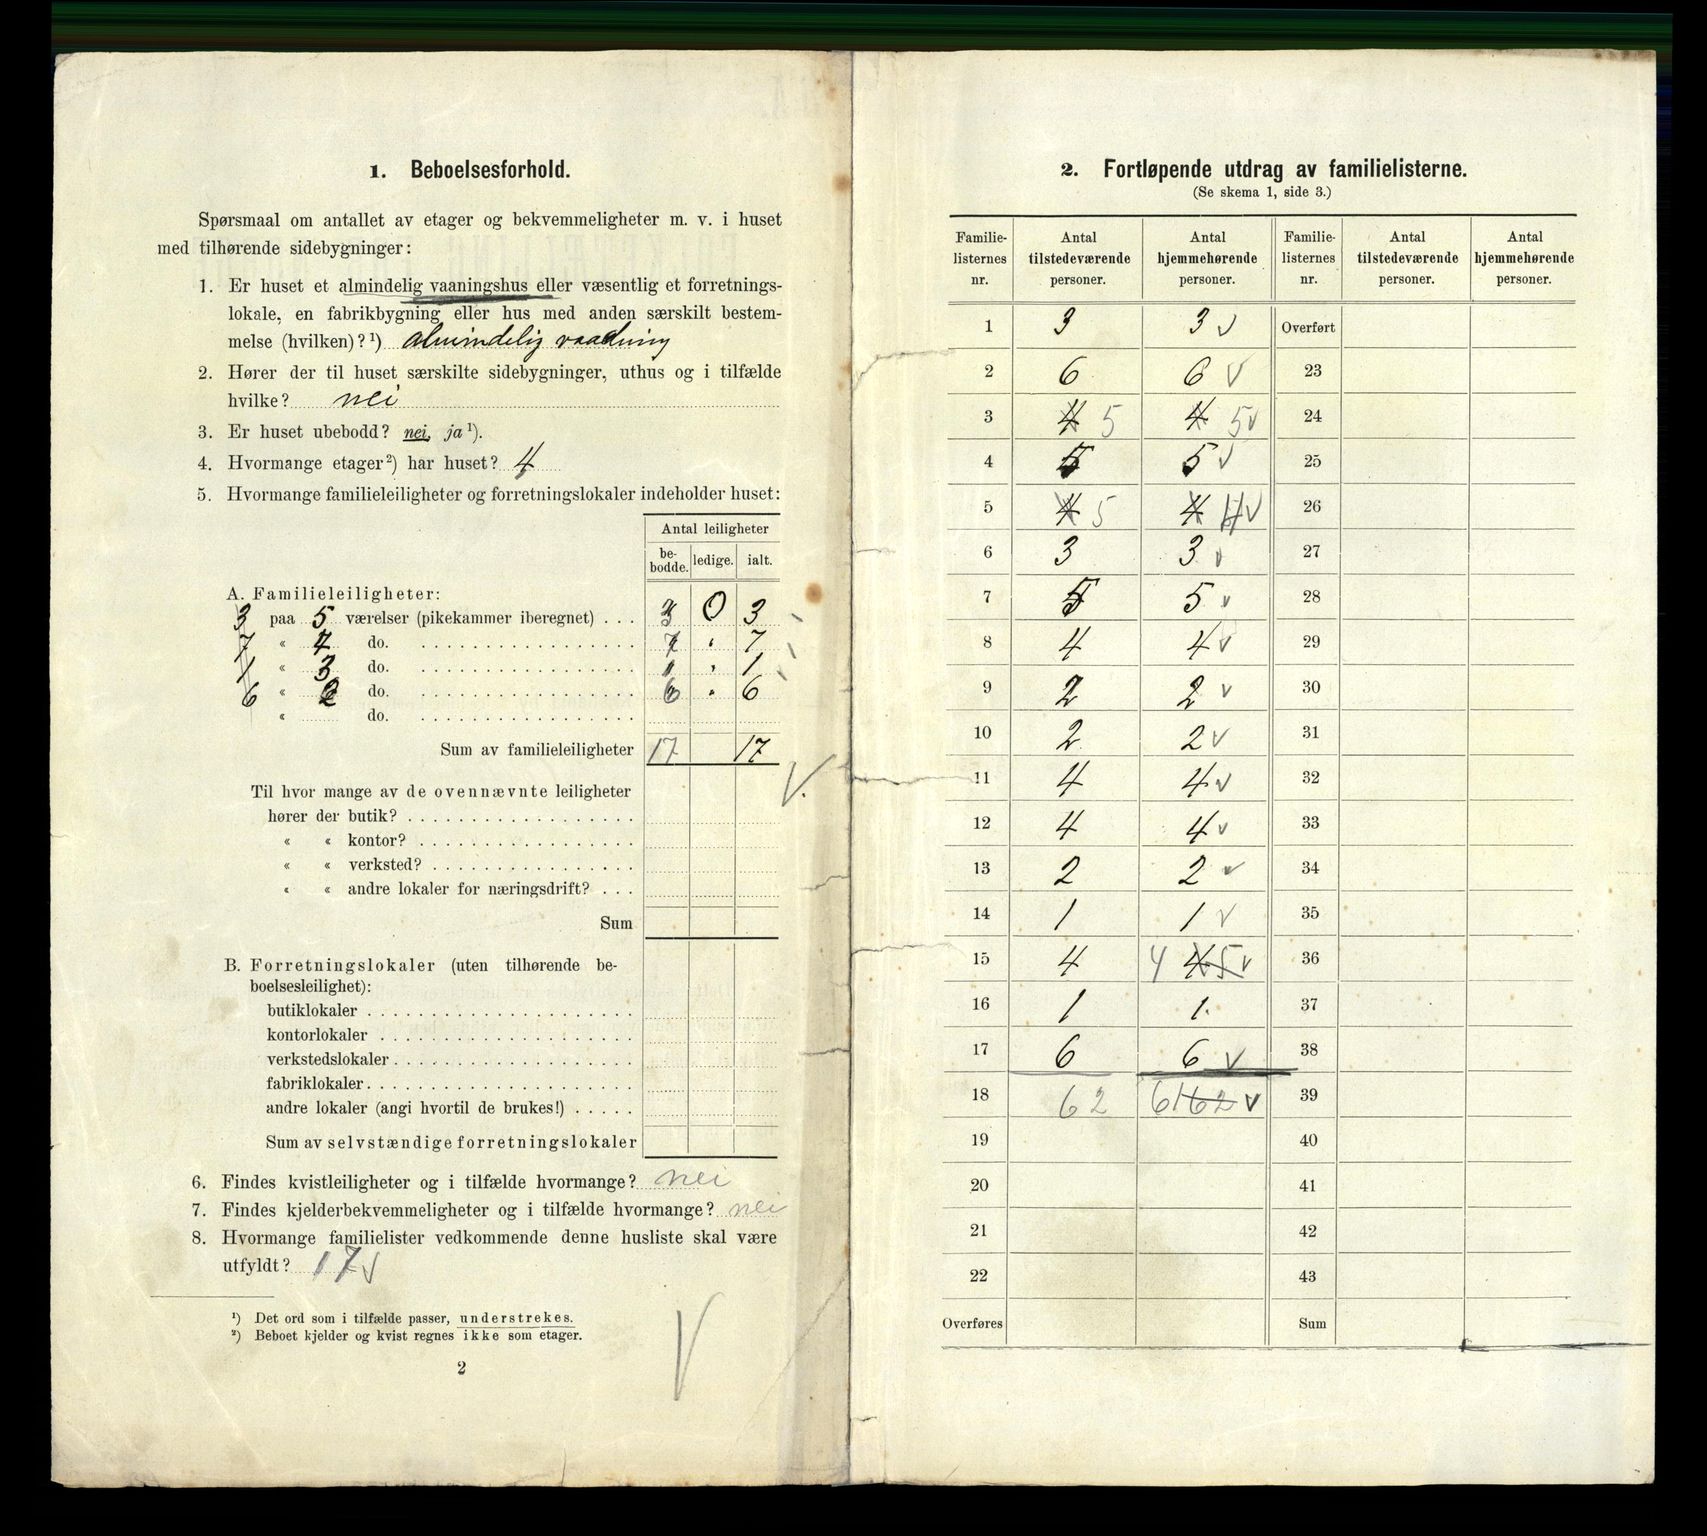 1. Beboelsesforhold.
Spørsmaal om antallet av etager og bekvemmeligheter m. v. i huset
med tilhørende sidebygninger:
1. Er huset et almindelig vaaningshus eller væsentlig et forretnings-
lokale, en fabrikbygning eller hus med anden særskilt bestem-
melse (hvilken)?¹) almindelig vaadning
2. Hører der til huset særskilte sidebygninger, uthus og i tilfælde
hvilke? nei
3. Er huset ubebodd? nei, ja¹).
4. Hvormange etager²) har huset? 4
5. Hvormange familieleiligheter og forretningslokaler indeholder huset:
Antal leiligheter
be-bodde. ledige. ialt.
A. Familieleiligheter:
3 paa 5 værelser (pikekammer iberegnet) . . . 3 0 3
7 « 4 do. . . . . . . . . . . . . . . . . . . 7 " 7
1 « 3 do. . . . . . . . . . . . . . . . . . . 1 " 1
6 « 2 do. . . . . . . . . . . . . . . . . . . 6 " 6
« do. . . . . . . . . . . . . . . . . . .
Sum av familieleiligheter 17 17
Til hvor mange av de ovennævnte leiligheter
hører der butik? . . . . . . . . . . . . . . . . . .
« « kontor? . . . . . . . . . . . . . . . . . .
« « verksted? . . . . . . . . . . . . . . . . .
« « andre lokaler for næringsdrift? . . .
Sum
B. Forretningslokaler (uten tilhørende be-
boelsesleilighet):
butiklokaler . . . . . . . . . . . . . . . . . . . . .
kontorlokaler . . . . . . . . . . . . . . . . . . . .
verkstedslokaler . . . . . . . . . . . . . . . . . . .
fabriklokaler . . . . . . . . . . . . . . . . . . . . .
andre lokaler (angi hvortil de brukes!) . . . . .
Sum av selvstændige forretningslokaler
6. Findes kvistleiligheter og i tilfælde hvormange? nei
7. Findes kjelderbekvemmeligheter og i tilfælde hvormange? nei
8. Hvormange familielister vedkommende denne husliste skal være
utfyldt? 17 v
¹) Det ord som i tilfælde passer, understrekes.
²) Beboet kjelder og kvist regnes ikke som etager.
2
2. Fortløpende utdrag av familielisterne.
(Se skema 1, side 3.)
Familie-listernes nr. Antal tilstedeværende personer. Antal hjemmehørende personer. Familie-listernes nr. Antal tilstedeværende personer. Antal hjemmehørende personer.
1 3 3 v Overført
2 6 6 v 23
3 4 5 4 5 v 24
4 5 5 v 25
5 4 5 4 4 v 26
6 3 3 v 27
7 5 5 v 28
8 4 4 v 29
9 2 2 v 30
10 2 2 v 31
11 4 4 v 32
12 4 4 v 33
13 2 2 v 34
14 1 1 v 35
15 4 4 4 5 v 36
16 1 1. 37
17 6 6 v 38
18 62 61 62 v 39
19 40
20 41
21 42
22 43
Overføres Sum